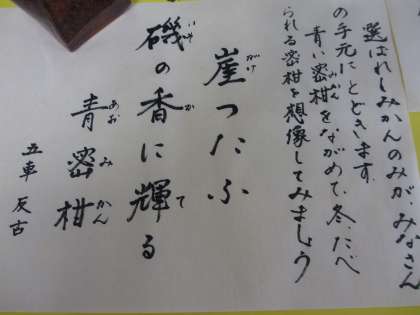 選ばれしみかんのみが、みなさん
の手元にとどきます。
青い密柑をながめて、冬、たべ
られる密柑を想像してみましょう
崖つたふ
がけ
磯の香に輝る
いそ か て
青密柑
あお み かん
五車 反古